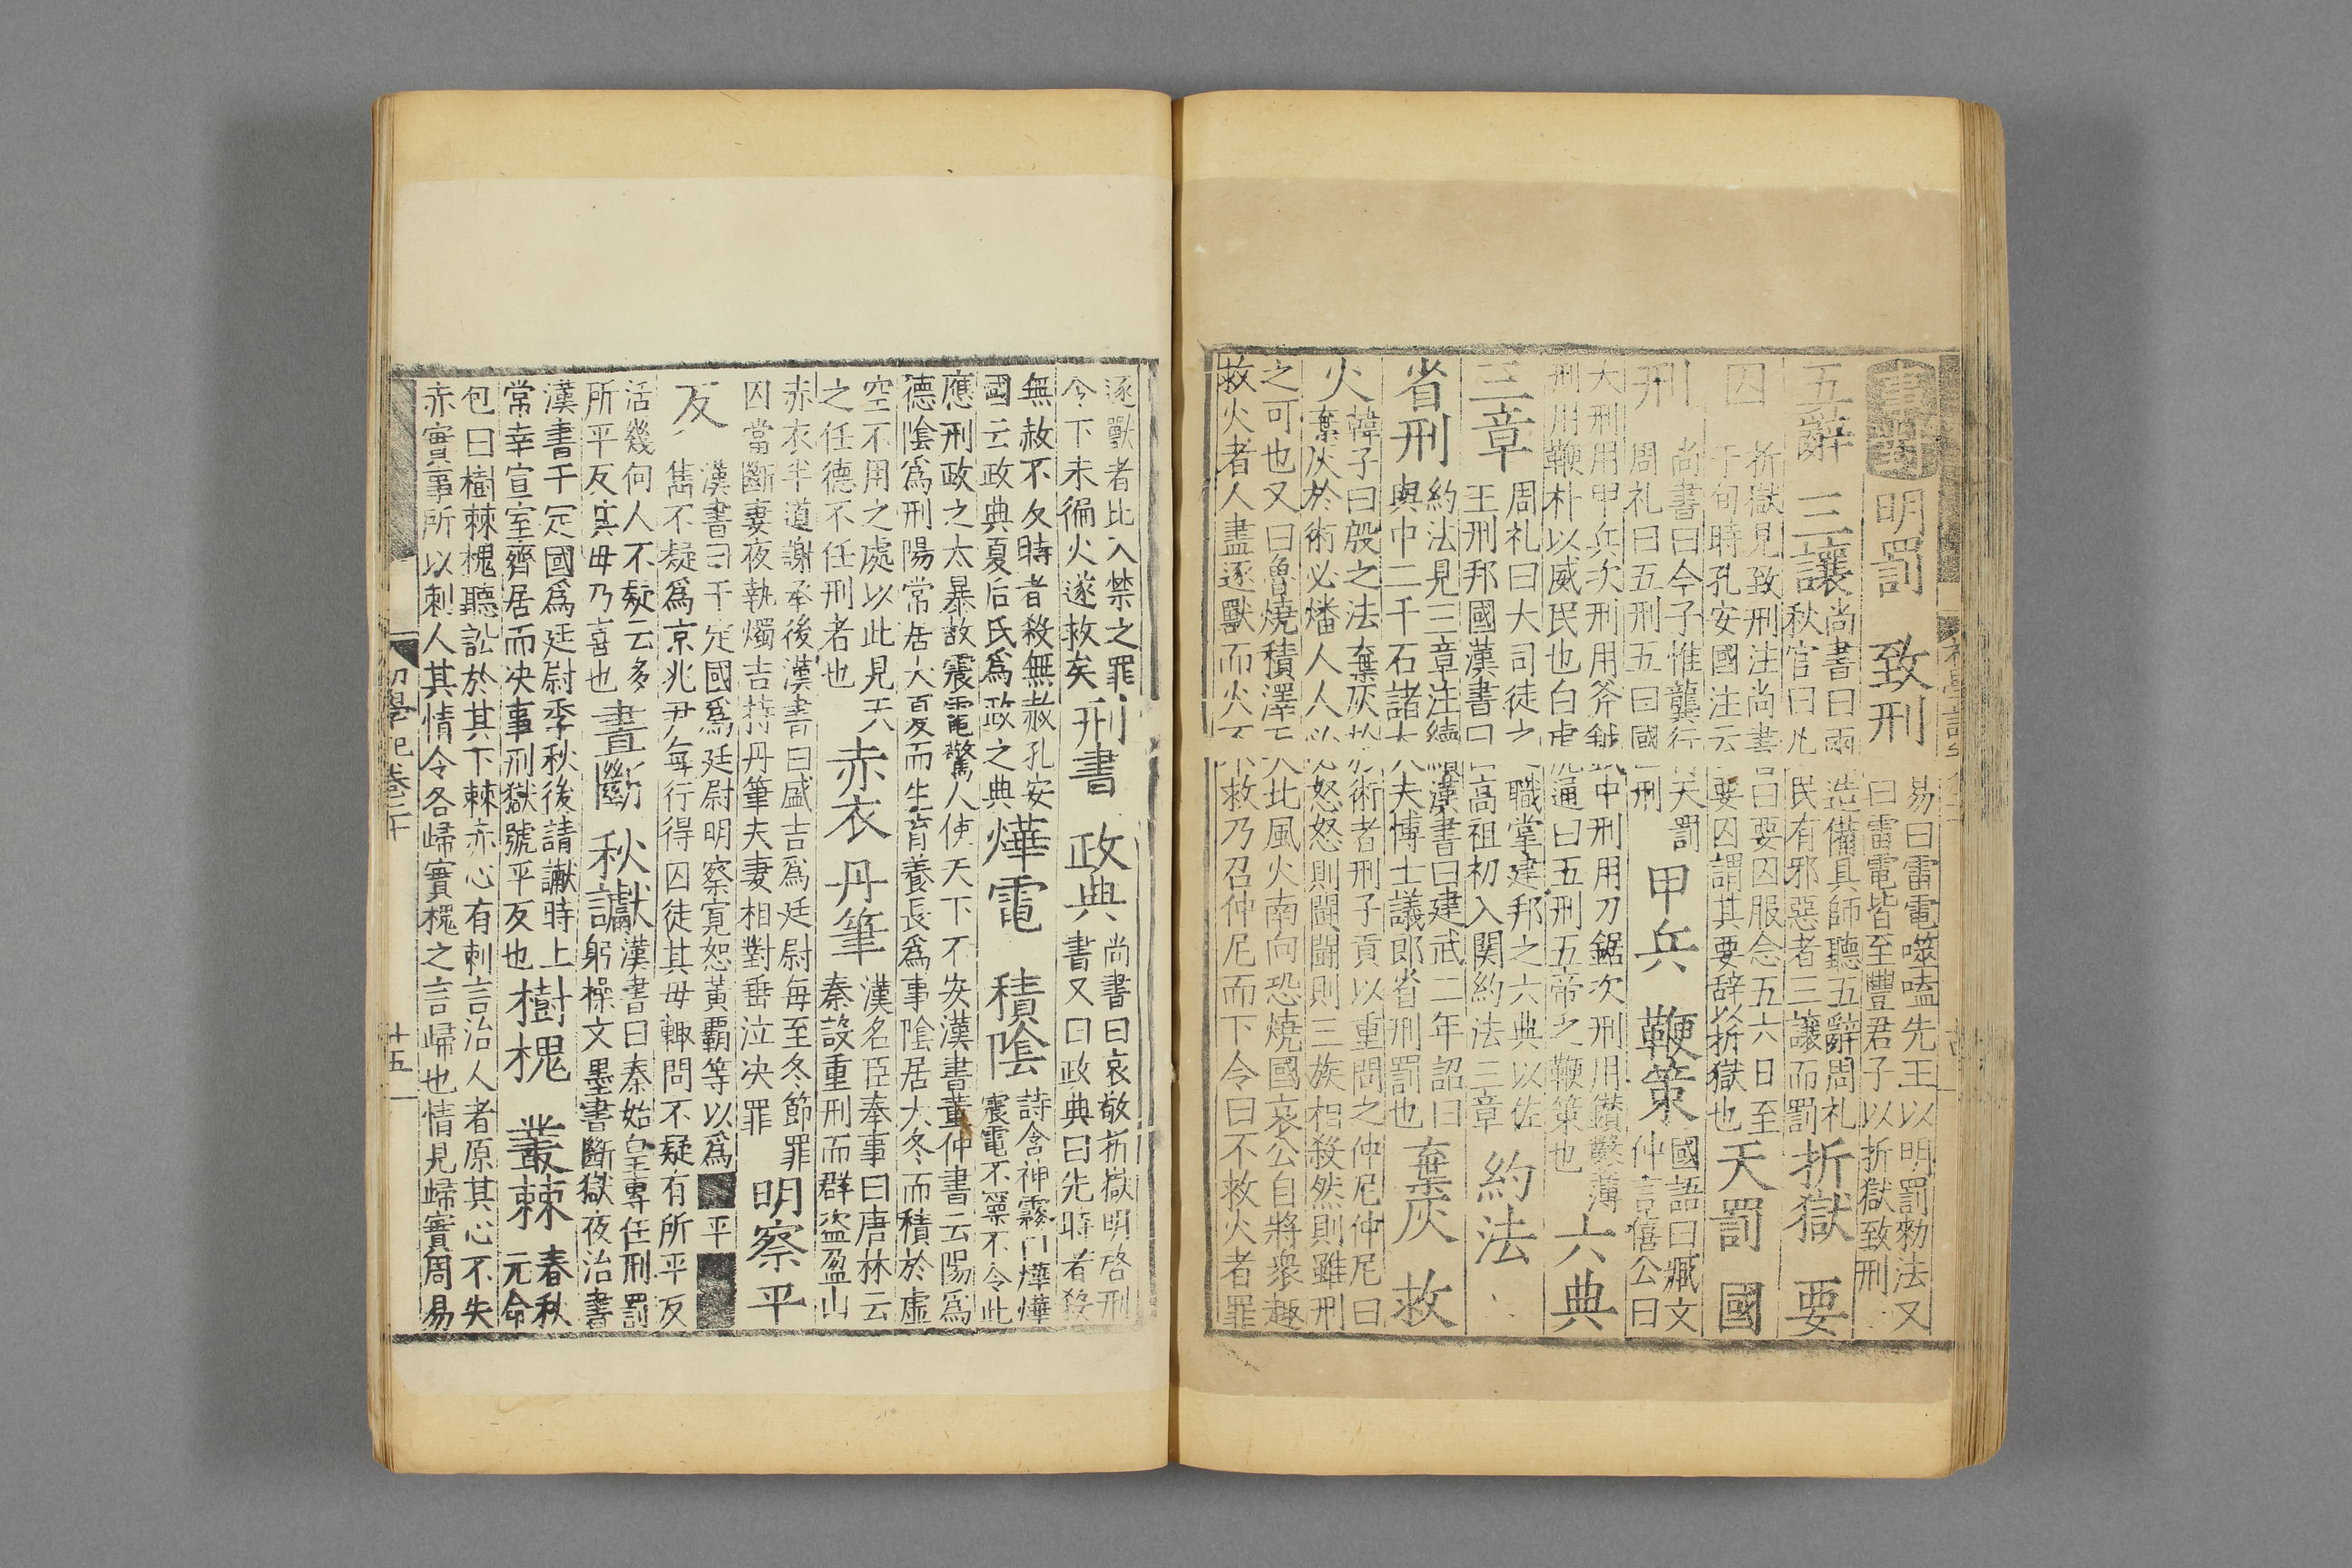 事對 明罰 致刑 易曰雷電噬嗑先王以明罰勑法又
曰雷電皆至豐君子以折獄致刑
五辭 三讓 尚書曰兩造備具師聽五辭周礼
秋官曰凡民有邪惡者三讓而罰 折獄 要
囚 折獄見致刑注尚書曰要囚服念五六日至
于旬時孔安國注云要囚謂其要辞以折獄也 天罰 國
刑 尚書曰今予惟龔行天罰
周礼曰五刑五曰國刑 甲兵 鞭策 國語曰臧文
仲言僖公曰
大刑用甲兵次刑用斧鉞中刑用刀鋸次刑用鑽鑿薄
刑用鞭朴以威民也白虎通曰五刑五帝之鞭策也 六典
三章 周礼曰大司徒之職掌建邦之六典以佐
王刑邦國漢書曰高祖初入関約法三章 約法
省刑 約法見三章注續漢書曰建武二年詔曰
與中二千石諸大夫博士議郎省刑罰也 棄灰 救
火 韓子曰殷之法棄灰於術者刑子貢以重問之仲尼仲尼曰
棄灰於術必燔人人必怒怒則鬪鬪則三族相殺然則雖刑
之可也又曰魯燒積澤天北風火南向恐燒國哀公自將衆趣
救火者人盡逐獸而火不救乃召仲尼而下令曰不救火者罪
逐獸者比入禁之罪
令下未徧火遂救矣 刑書 政典 尚書曰哀敬折嶽明啓刑
書又曰政典曰先時者殺
無赦不及時者殺無赦孔安
國云政典夏后氏爲政之典 燁電 積隂 詩含神霧曰燁燁
震電不𥹢不令此
應刑政之太暴故震電驚人使天下不安漢書董仲書云陽爲
德隂爲刑陽常居大夏而生育養長爲事隂居大冬而積於虛
空不用之處以此見天
之任德不任刑者也 赤衣 丹筆 漢名臣奉事曰唐林云
秦設重刑而群盜盈山
赤衣半道謝承後漢書曰盛吉爲廷尉每至冬節罪
囚當斷妻夜執燭吉持丹筆夫妻相對垂泣决罪 明察 平
反 漢書曰于定國爲廷尉明察寛恕黃霸等以爲 平
雋不疑爲京兆尹每行得囚徒其毋輙問不疑有所平反
活幾何人不疑云多
所平反其毋乃喜也 晝斷 秋讞 漢書曰秦始皇專任刑罰
躬操文墨書斷獄夜治書
漢書于定國爲廷尉季秋後請讞時上
常幸宣室齊居而决事刑獄號平反也 樹槐 叢棘 春秋
元命
包曰樹棘槐聽訟於其下棘亦心有刺言治人者原其心不失
赤實事所以刺人其情令各歸實槐之言歸也情見歸實周易
初學記卷二十
十五